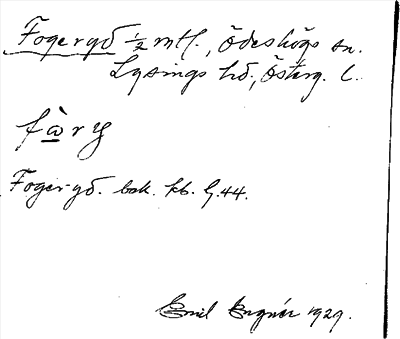 Fogergd ½ mtl., Ödeshögs sn.
Lysings hd, Österg. l.
fὼry
Foger-gd. bok. kb. G.44.
Emil 1929.